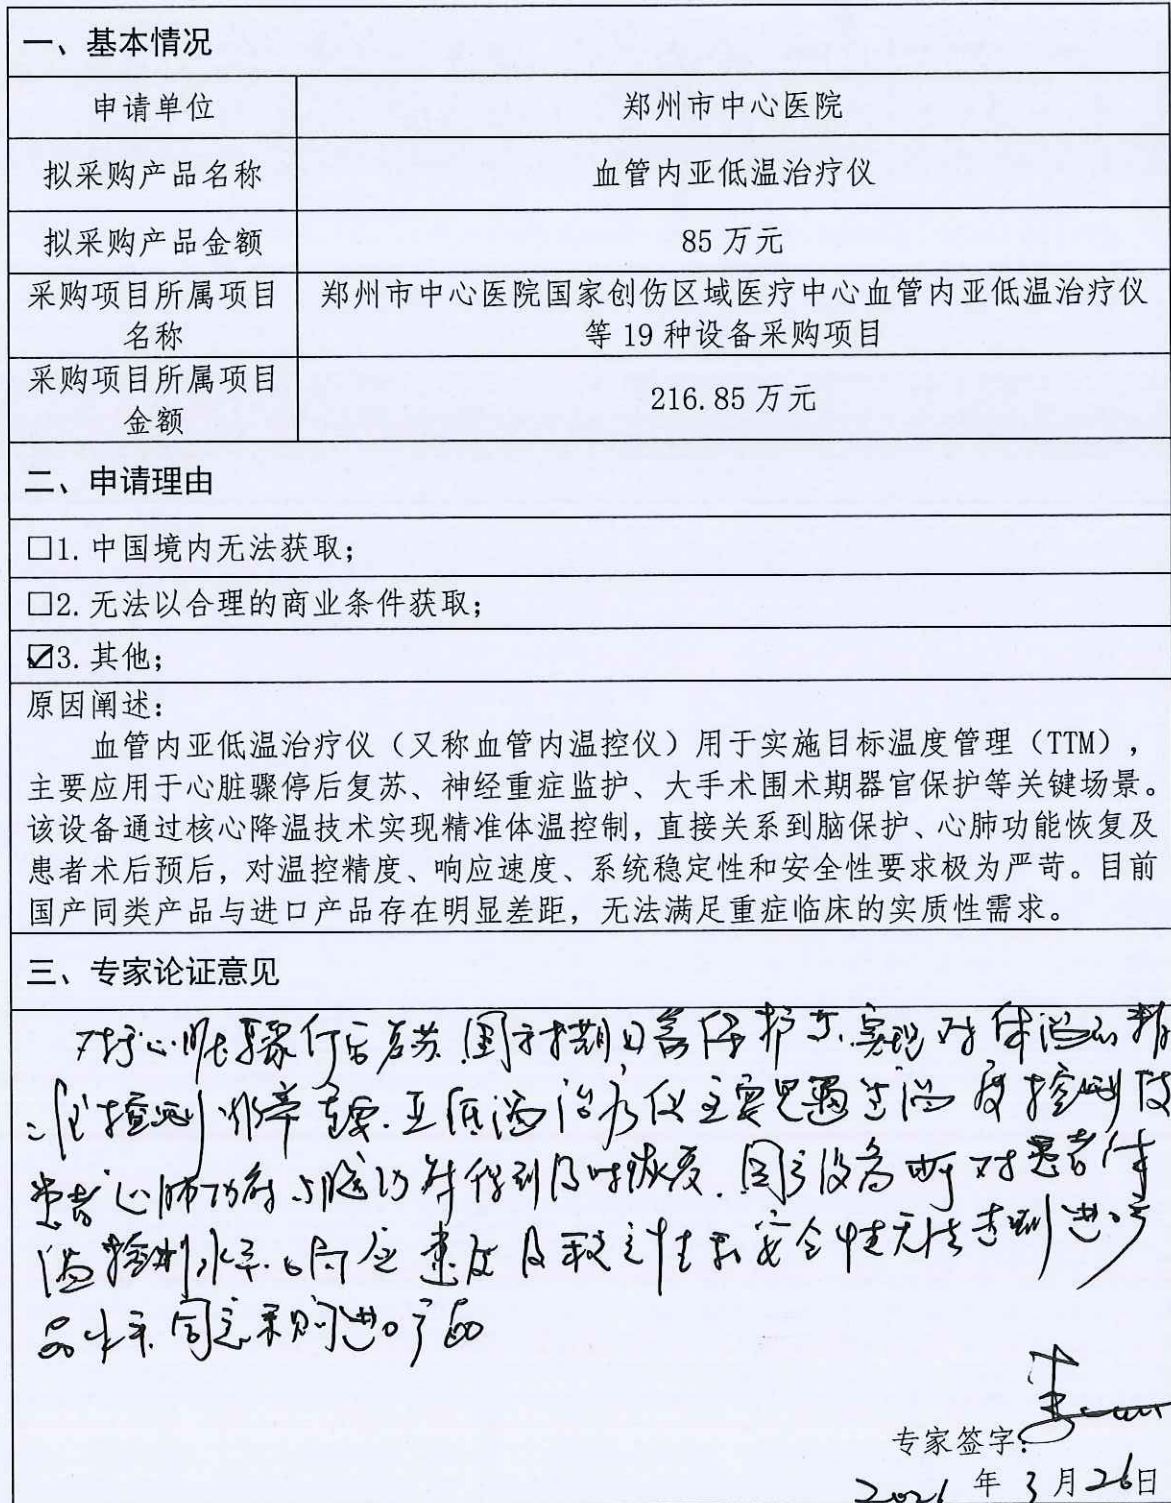 一、基本情况
申请单位
郑州市中心医院
拟采购产品名称
血管内亚低温治疗仪
拟采购产品金额
85万元
采购项目所属项目
名称
郑州市中心医院国家创伤区域医疗中心血管内亚低温治疗仪
等19种设备采购项目
采购项目所属项目
金额
216.85万元
二、申请理由
□1.中国境内无法获取;
□2.无法以合理的商业条件获取;
☑3.其他;
原因阐述:
血管内亚低温治疗仪（又称血管内温控仪）用于实施目标温度管理（TTM），
主要应用于心脏骤停后复苏、神经重症监护、大手术围术期器官保护等关键场景。
该设备通过核心降温技术实现精准体温控制,直接关系到脑保护、心肺功能恢复及
患者术后预后，对温控精度、响应速度、系统稳定性和安全性要求极为严苛。目前
国产同类产品与进口产品存在明显差距，无法满足重症临床的实质性需求。
三、专家论证意见
对于心脏骤停后复苏.围术期器官保护等.实现对体温的精
准控制非常重要.亚低温治疗仪主要是通过温度控制使
患者心肺功能与脑功能得到及时恢复.国产设备对患者体
温控制水平.响应速度及稳定性和安全性无法达到进口产
品水平.同意采购进口产品
专家签字:
年3月26日